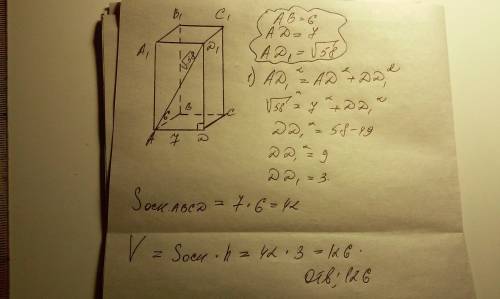 B₁ C₁
A₁ D₁
√58
6 B C
A 7 D
AB = 6
AD = 7
AD₁ = √58
1) AD₁² = AD² + DD₁²
√58² = 7² + DD₁²
DD₁² = 58 - 49
DD₁² = 9
DD₁ = 3.
Sосн ABCD = 7 · 6 = 42
V = Sосн · h = 42 · 3 = 126.
Отв; 126